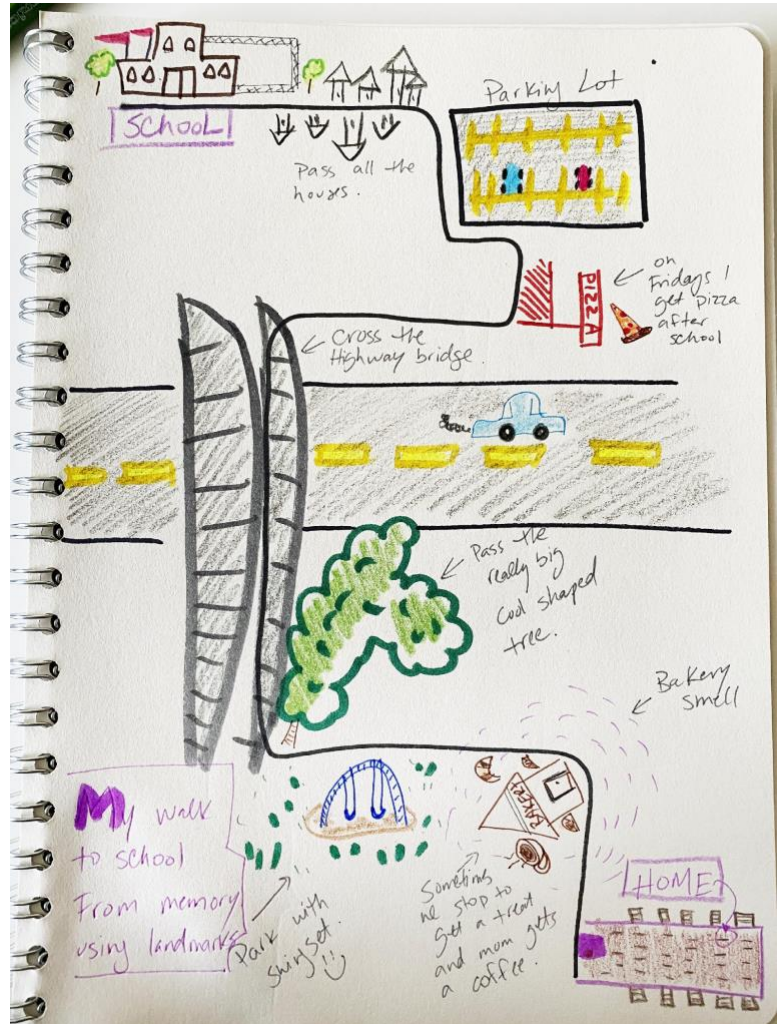 SCHOOL
Pass all the
houses.
Parking Lot
PIZZA
on
Fridays I
get pizza
after
school
Cross the
Highway bridge.
Pass the
really big
cool shaped
tree.
Bakery
smell
BAKERY
My walk
to school
From memory
using landmarks
Park with
swingset.
Sometimes
we stop to
get a treat
and mom gets
a coffee.
HOME